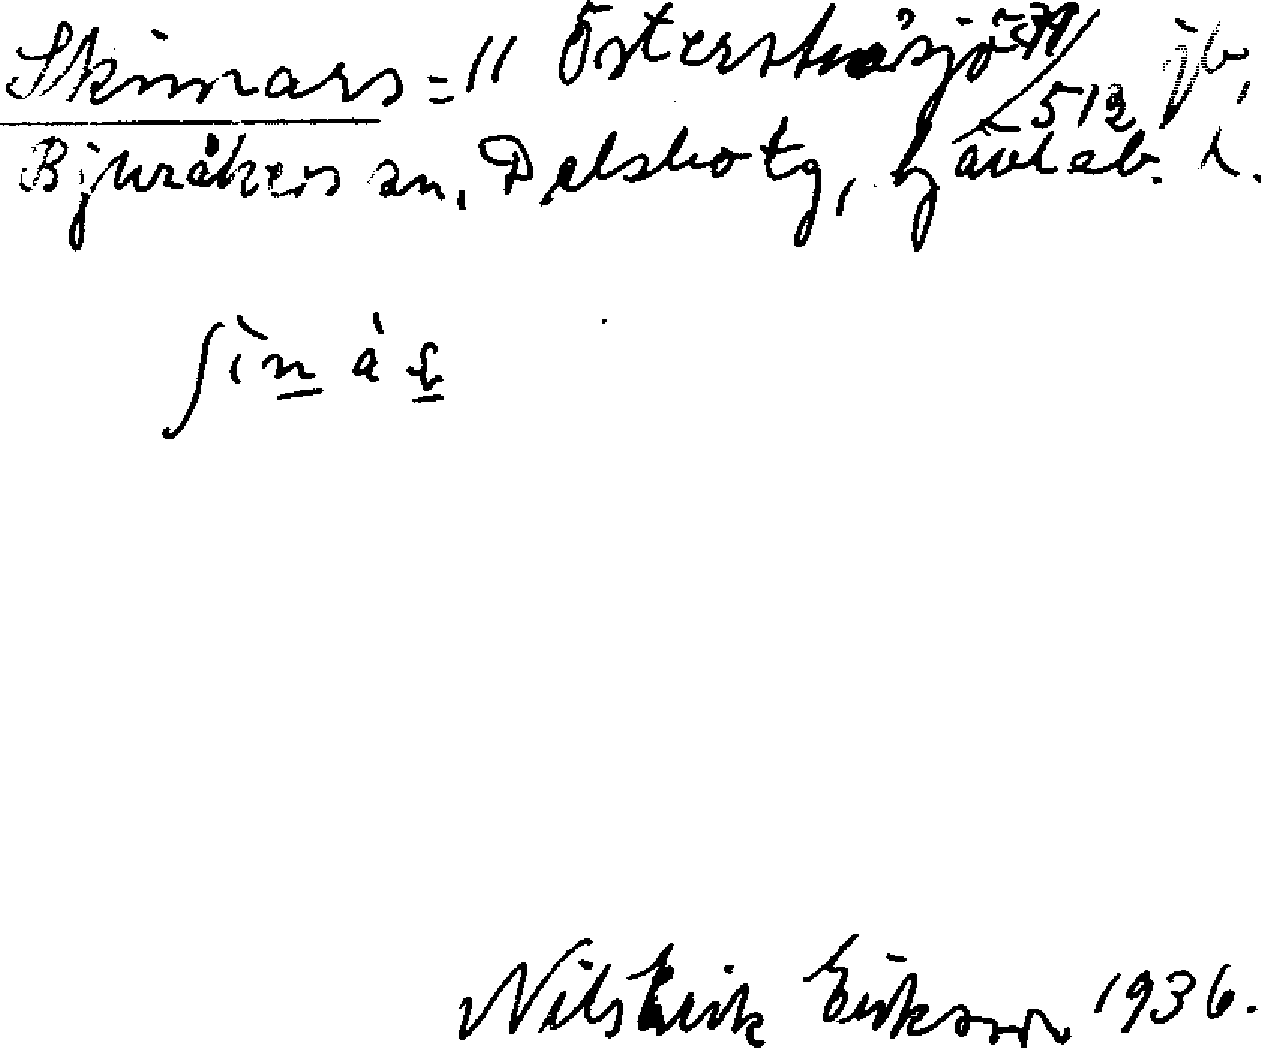 Skinnars = " Österstråsjö 5 19/512 jb,
Bjuråkers sn, Delsbo tg, Gävleb. l.
ʃìnàṣ
Nils Erik Erikson 1936.